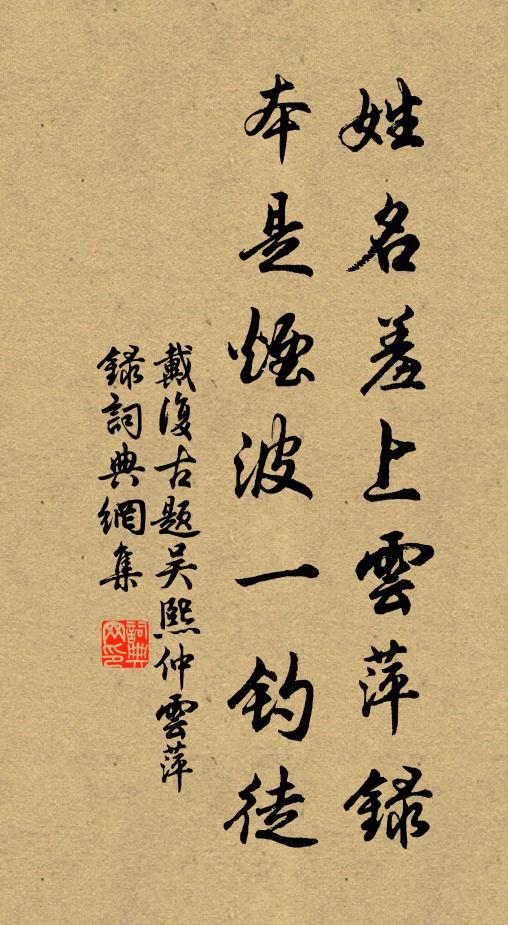 姓名羞上雲萍錄
本是煙波一釣徒
戴復古題吴熙仲雲萍
錄詞典網集
詞典
网印